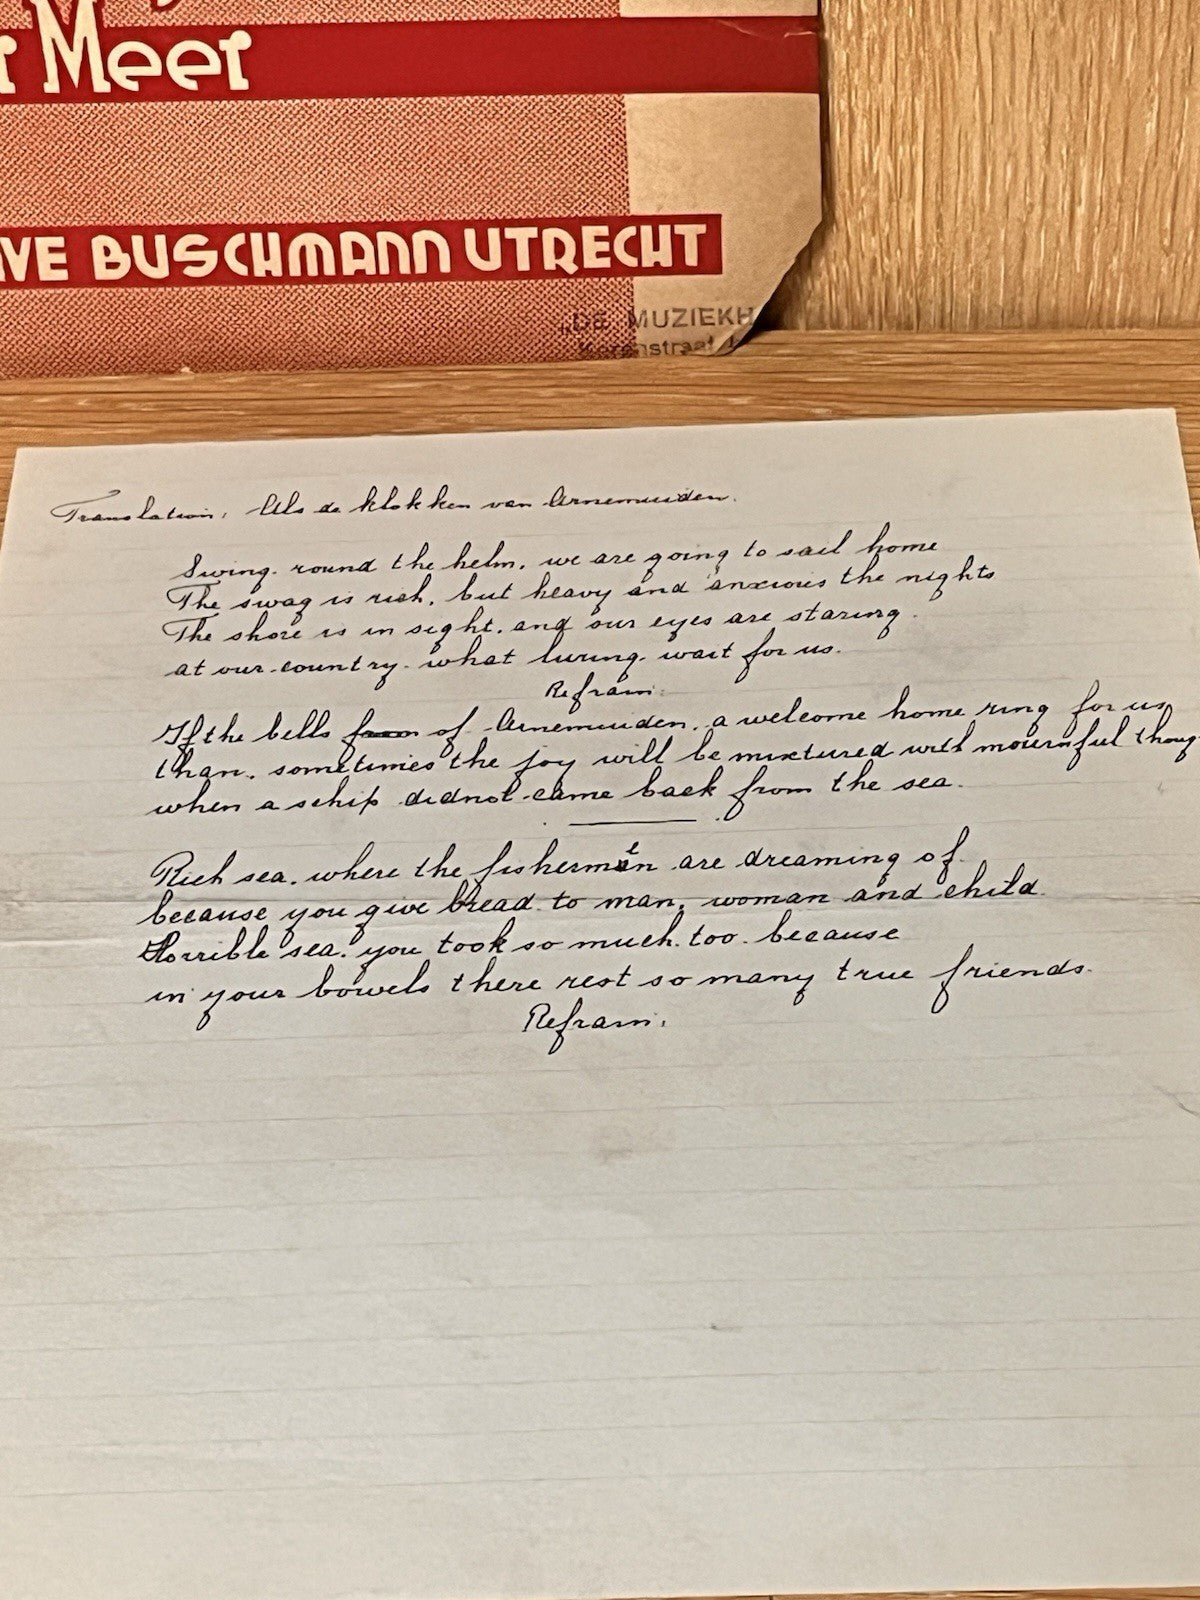 r Meer
VE BUSCHMANN UTRECHT
"DE MUZIEKH
Translation: Als de klokken van Arnemuiden.
Swing round the helm, we are going to sail home
The swag is rich, but heavy and anxious the nights
The shore is in sight, and our eyes are staring.
at our country. what luring wait for us.
Refrain:
If the bells of Arnemuiden, a welcome home ring for us
than, sometimes the joy will be mixtured with mournful thoug
when a schip didnot came back from the sea.
Rich sea. where the fishermen are dreaming of
because you give bread to man, woman and child.
Horrible sea. you took so much too. because
in your bowels there rest so many true friends.
Refrain.